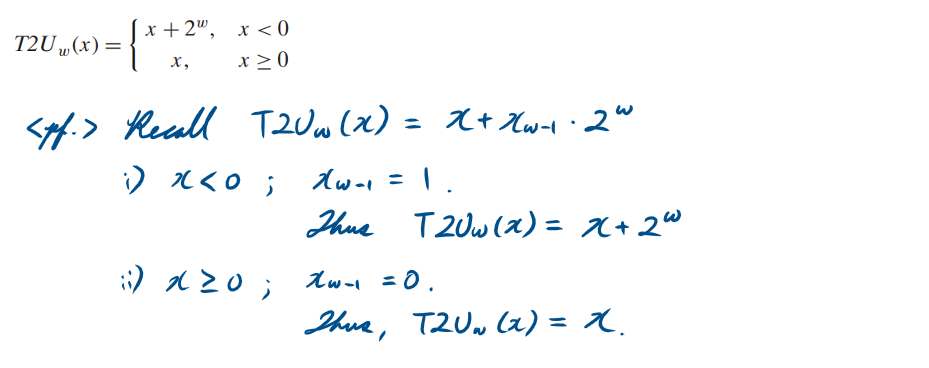 T2U_w(x) = { x + 2^w, x < 0
x, x ≥ 0
<pf.> Recall T2U_w(x) = x + x_{w-1} · 2^w
i) x < 0 ; x_{w-1} = 1.
Thus T2U_w(x) = x + 2^w
ii) x ≥ 0 ; x_{w-1} = 0.
Thus, T2U_w(x) = x.